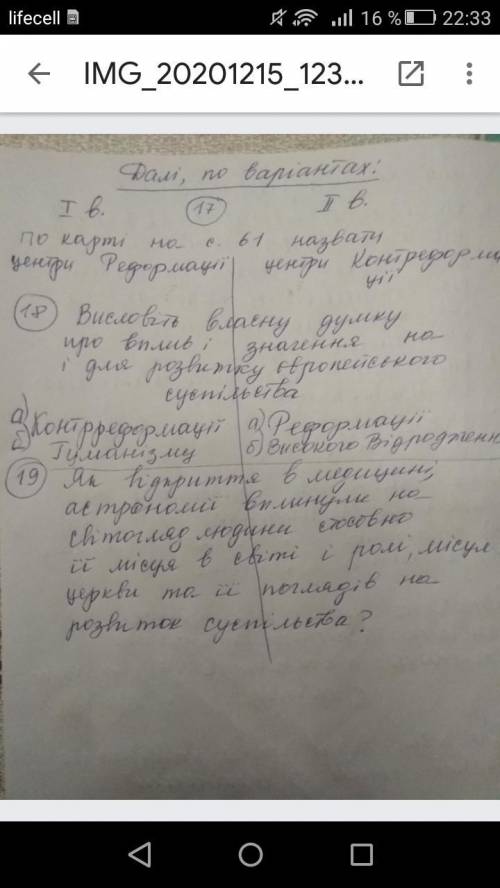 lifecell 16 % 22:33
IMG_20201215_123...
Далі, по варіантах!
І в. 17 ІІ в.
по карті на с. 61 назвати
центри Реформації центри Контреформа
ції
18 Висловіть власну думку
про вплив і значення на
і для розвитку європейського
суспільства
а) Контрреформації а) Реформації
б) Гуманізму б) Високого Відроджен
19 Як відкриття в медицині,
астрономії вплинули на
світогляд людини стосовно
її місця в світі і ролі, місця
церкви та її поглядів на
розвиток суспільства?